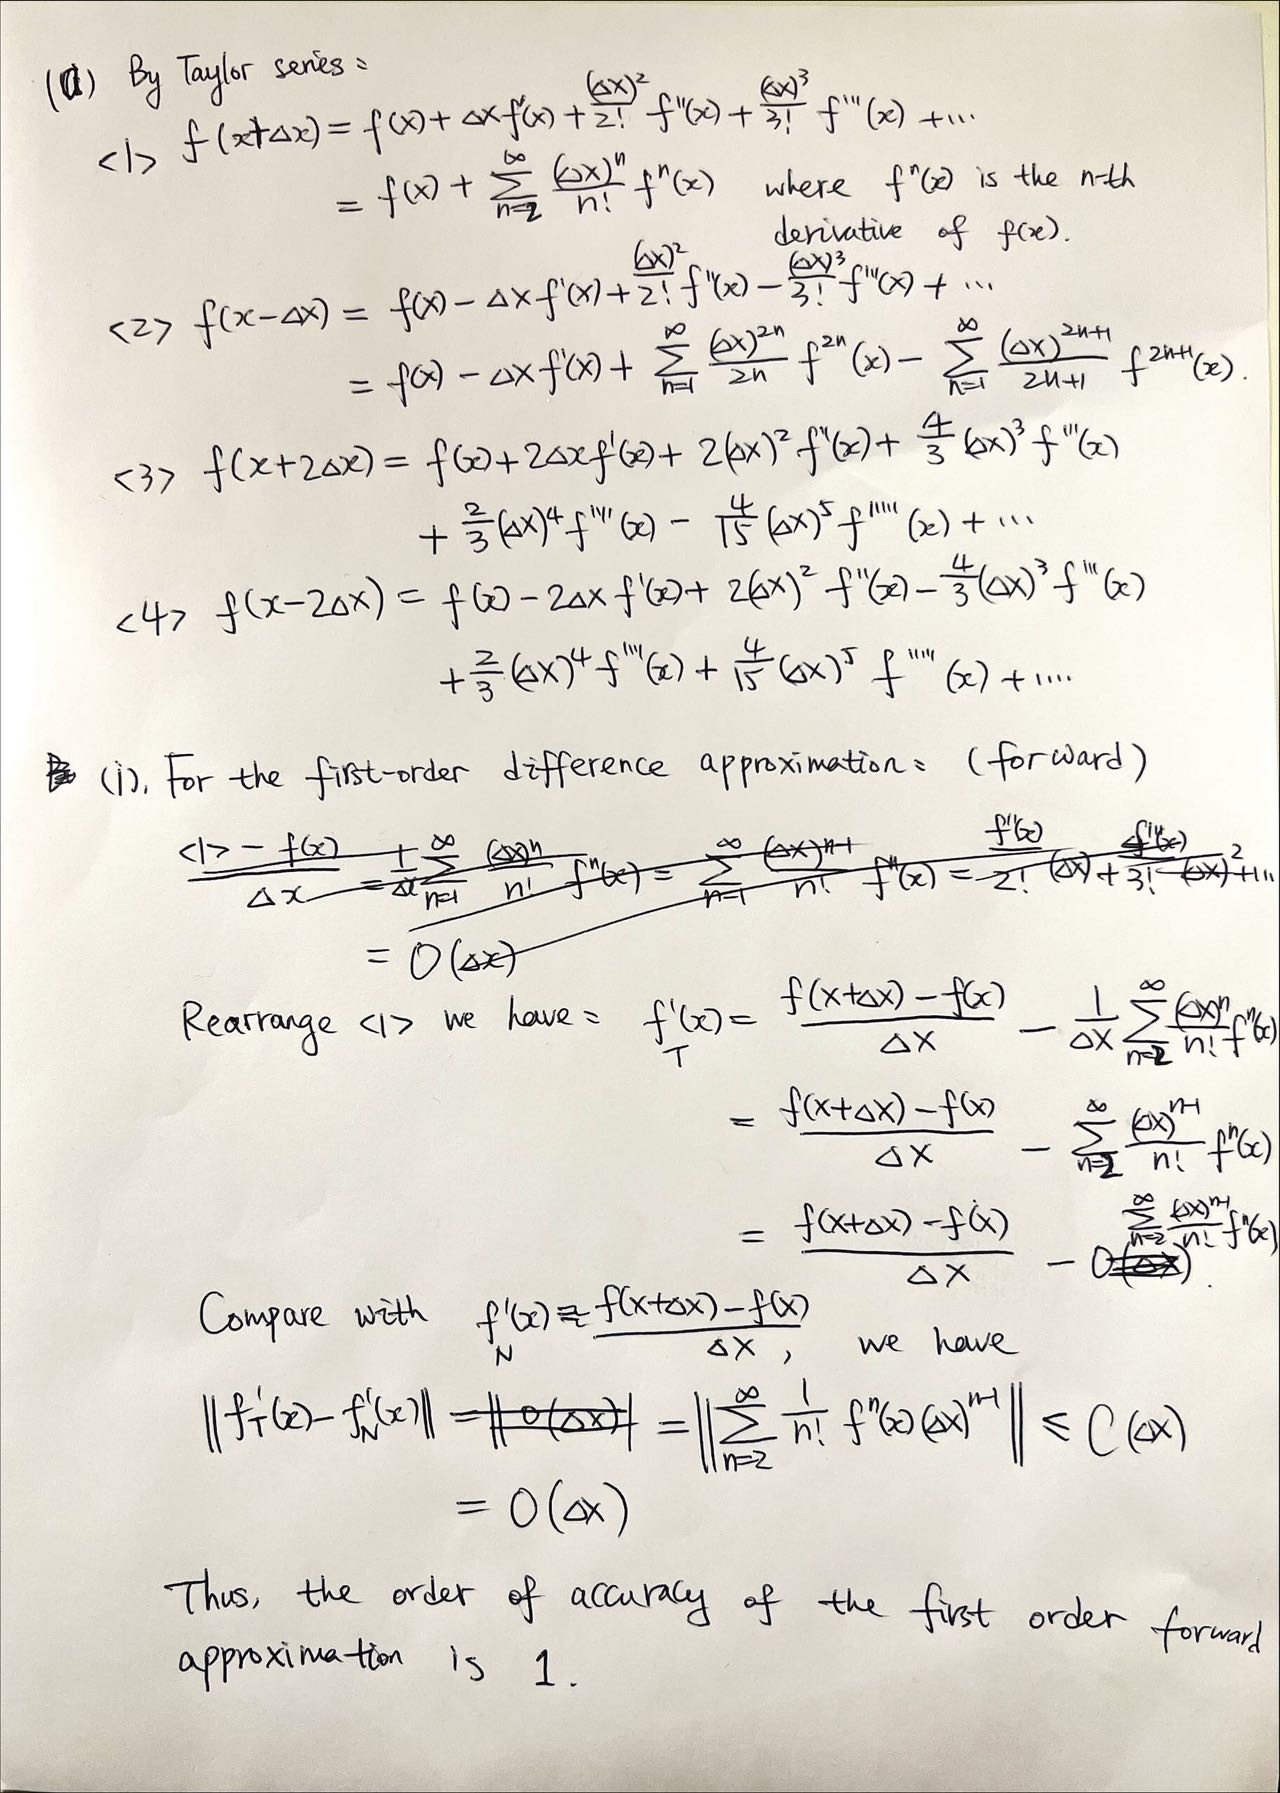 (a) By Taylor series:
<1> f(x+Δx) = f(x) + Δx f'(x) + (Δx)²/2! f''(x) + (Δx)³/3! f'''(x) + ...
= f(x) + Σ_{n=2}^{∞} (Δx)ⁿ/n! fⁿ(x) where fⁿ(x) is the n-th
derivative of f(x).
<2> f(x-Δx) = f(x) - Δx f'(x) + (Δx)²/2! f''(x) - (Δx)³/3! f'''(x) + ...
= f(x) - Δx f'(x) + Σ_{n=1}^{∞} (Δx)^{2n}/2n f^{2n}(x) - Σ_{n=1}^{∞} (Δx)^{2n+1}/2n+1 f^{2n+1}(x).
<3> f(x+2Δx) = f(x) + 2Δx f'(x) + 2(Δx)² f''(x) + 4/3 (Δx)³ f'''(x)
+ 2/3 (Δx)⁴ f''''(x) - 4/15 (Δx)⁵ f'''''(x) + ...
<4> f(x-2Δx) = f(x) - 2Δx f'(x) + 2(Δx)² f''(x) - 4/3 (Δx)³ f'''(x)
+ 2/3 (Δx)⁴ f''''(x) + 4/15 (Δx)⁵ f'''''(x) + ....
(i). For the first-order difference approximation: (forward)
<1> - f(x) / Δx = 1/Δx Σ_{n=1}^{∞} (Δx)ⁿ/n! fⁿ(x) = Σ_{n=1}^{∞} (Δx)^{n-1}/n! fⁿ(x) = f''(x)/2! (Δx) + f'''(x)/3! (Δx)² + ...
= O(Δx)
Rearrange <1> we have: f'_T(x) = f(x+Δx) - f(x) / Δx - 1/Δx Σ_{n=2}^{∞} (Δx)ⁿ/n! fⁿ(x)
= f(x+Δx) - f(x) / Δx - Σ_{n=2}^{∞} (Δx)^{n-1}/n! fⁿ(x)
= f(x+Δx) - f(x) / Δx - Σ_{n=2}^{∞} (Δx)^{n-1}/n! fⁿ(x) O(Δx).
Compare with f'_N(x) = f(x+Δx) - f(x) / Δx, we have
||f'_T(x) - f'_N(x)|| = ||O(Δx)|| = ||Σ_{n=2}^{∞} 1/n! fⁿ(x) (Δx)^{n-1}|| ≤ C(Δx)
= O(Δx)
Thus, the order of accuracy of the first order forward
approximation is 1.